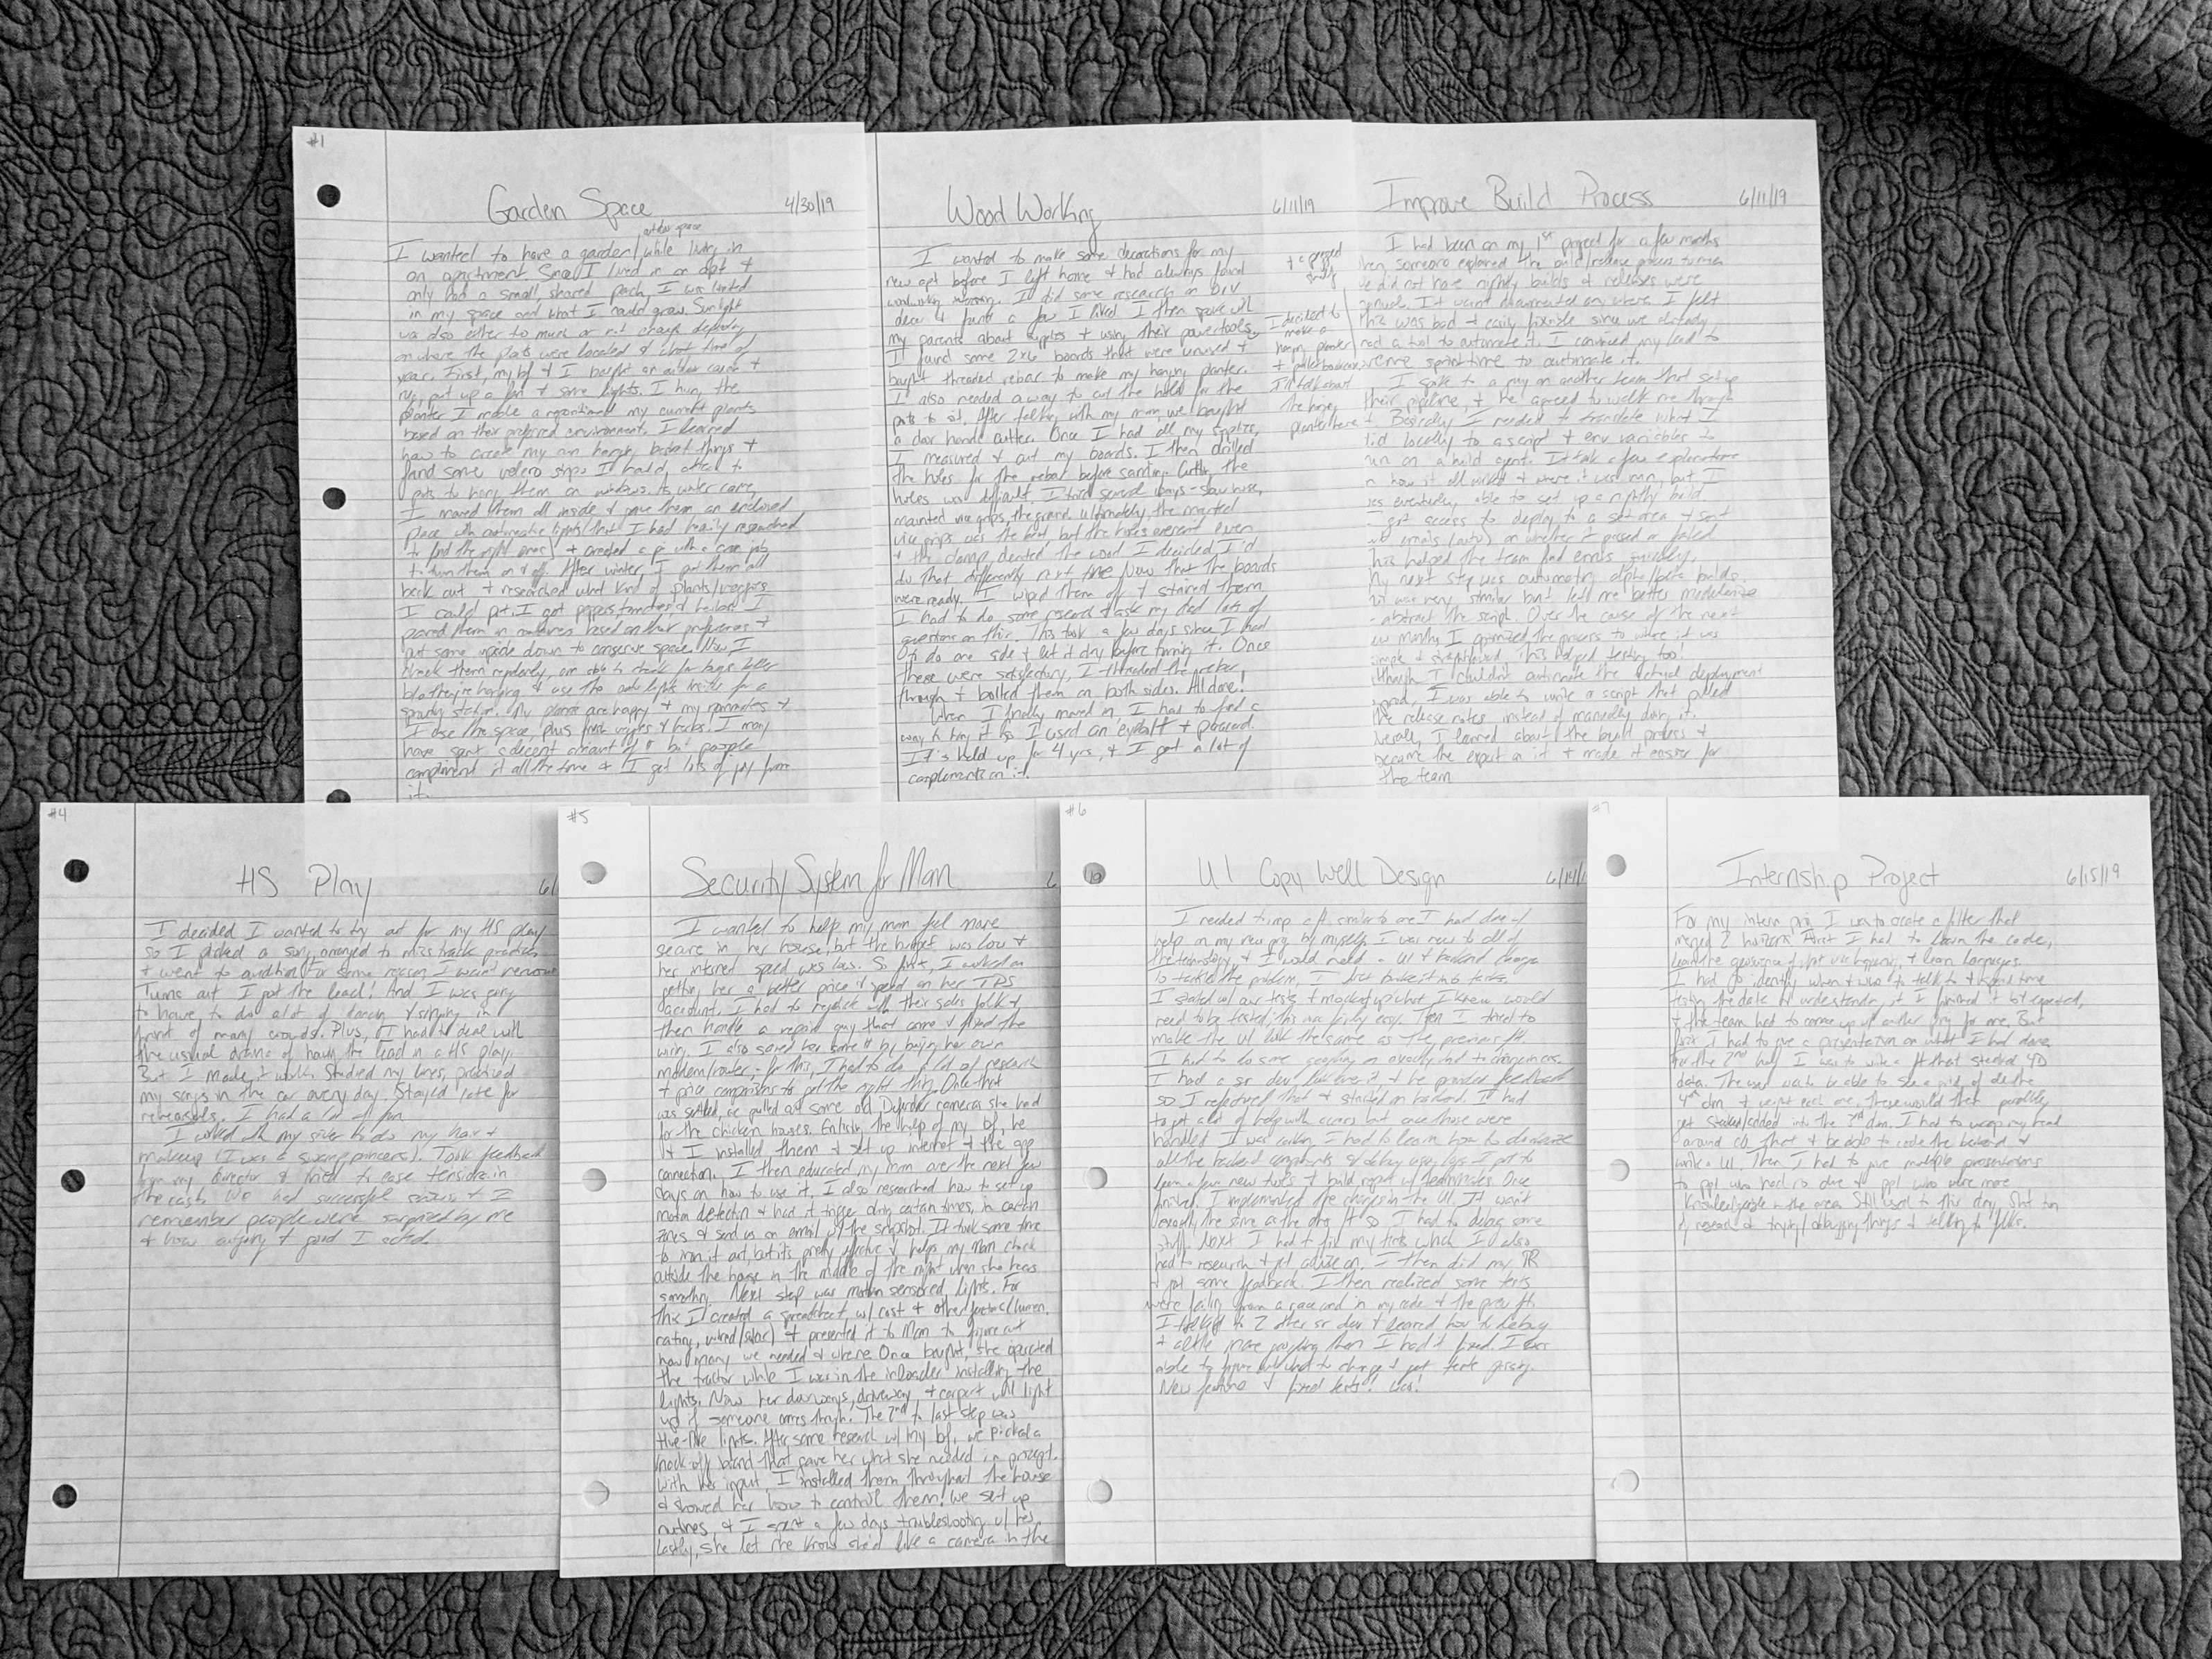 #1
Garden Space 4/30/19
outdoor space
I wanted to have a garden/ while living in
an apartment. Since I lived in an apt +
only had a small, shared porch, I was limited
in my space and what I could grow. Sunlight
was also either to much or not enough depending
on where the plants were located & what time of
year. First, my bf & I bought an outdoor couch +
rug, put up a fan + some lights. I hung the
planter I made & repositioned my current plants
based on their preferred environment. I learned
how to create my own hanging basket things +
found some velcro strips I could attach to
pots to hang them on windows. As winter came,
I moved them all inside & gave them an enclosed
place with automatic lights (that I had heavily researched
to find the right ones) + created a pi with a cron job
to turn them on & off. After winter, I put them all
back out + researched what kind of plants/veggies
I could put. I got peppers, tomatoes & herbs. I
placed them in containers based on their preferences +
put some upside down to conserve space. Now I
check them regularly, am able to check for bugs better
b/c they're hanging & use the
My plants are happy + my roommates +
I use the space, plus fresh veggies & herbs. I may
have spent a decent amount of $ but people
compliment it all the time & I get lots of joy from
it.
Wood Working 6/11/19
I wanted to make some decorations for my
new apt before I left home & had always found
woodworking amazing. I did some research on DIY
decor & found a few I liked. I then spoke with
my parents about supplies + using their powertools.
I found some 2x6 boards that were unused +
bought threaded rebar to make my hanging planter.
I also needed a way to cut the holes for the
pots to sit. After talking with my mom, we bought
a door handle cutter. Once I had all my supplies,
I measured & cut my boards. I then drilled
the holes for the rebar before sanding. Cutting the
holes was difficult. I tried several ways - saw horse,
mounted vice grips, the ground. Ultimately, the mounted
vice grips was the best, but the holes weren't even
+ the clamp dented the wood. I decided I'd
do that differently next time. Now that the boards
were ready, I wiped them off & stained them.
I had to do some research & ask my dad lots of
questions on this. This took a few days since I had
to do one side & let it dry before turning it. Once
these were satisfactory, I threaded the rebar
through + bolted them on both sides. All done!
When I finally moved in, I had to find a
way to hang it so I used an eyebolt +
It's held up for 4 yrs, & I get a lot of
compliments on it.
I decided to
make a
hanging planter
+ pallet bookcase.
I'll talk about
the hanging
planter here
Improve Build Process 6/11/19
I had been on my 1st project for a few months
when someone explained the build/release process to me.
We did not have nightly builds & releases were
manual. It wasn't documented anywhere. I felt
this was bad + easily fixable since we already
had a tool to automate it. I convinced my lead to
give me some sprint time to automate it.
I spoke to a guy on another team that set up
their pipeline, & he agreed to walk me through
it. Basically I needed to translate what I
did locally to a script + env variables to
run on a build agent. It took a few explanations
on how it all worked + where it was run, but I
was eventually able to set up a nightly build.
I got access to deploy to a set area + sent
out emails (auto) on whether it passed or failed.
This helped the team find errors quickly.
My next step was automating alpha/beta builds.
This was very similar but let me better modularize
+ abstract the script. Over the course of the next
few months, I optimized the process to where it was
simple & straightforward. This helped testing too!
Although I couldn't automate the actual deployment
to prod, I was able to write a script that pulled
the release notes, instead of manually doing it.
Overall, I learned about the build process +
became the expert on it + made it easier for
the team
#4
HS Play 6/
I decided I wanted to try out for my HS play
so I picked a song, arranged to miss track practice
+ went to audition. For some reason, I wasn't nervous.
Turns out I got the lead! And I was going
to have to do a lot of dancing & singing in
front of many crowds. Plus, I had to deal with
the usual drama of having the lead in a HS play.
But I made it work. Studied my lines, practiced
my songs in the car every day. Stayed late for
rehearsals. I had a lot of fun.
I worked with my sister to do my hair +
makeup (I was a swamp princess). Took feedback
from my director & tried to ease tensions in
the cast. We had successful shows & I
remember people were surprised by me
& how outgoing & good I acted.
#5
Security System for Mom 6
I wanted to help my mom feel more
secure in her house, but the budget was low +
her internet speed was low. So first, I worked on
getting her a better price & speed on her TDS
account. I had to negotiate with their sales folk &
then handle a repair guy that came & fixed the
wiring. I also saved her some $ by buying her own
modem/router; for this, I had to do a lot of research
+ price comparisons to get the right thing. Once that
was settled, we pulled out some old Defender cameras she had
for the chicken houses. Enlisting the help of my bf, he
& I installed them & set up internet & the app
connection. I then educated my mom over the next few
days on how to use it. I also researched how to set up
motion detection & had it trigger during certain times, in certain
zones & send us an email of the snapshot. It took some time
to iron it out, but it's pretty effective & helps my mom check
outside the house in the middle of the night when she hears
something. Next step was motion sensored lights. For
this I created a spreadsheet w/ cost & other factors (lumen,
rating, wired/solar) & presented it to Mom to figure out
how many we needed & where. Once bought, she operated
the tractor while I was in the inloader installing the
lights. Now her doorways, driveway, + carport will light
up if someone comes through. The 2nd to last step was
Hue-like lights. After some research w/ my bf, we picked a
knock-off brand that gave her what she needed in budget.
With her input, I installed them throughout the house
& showed her how to control them. We set up
routines, & I spent a few days troubleshooting w/ her.
Lastly, she let me know she'd like a camera in the
#6
UI Copy Well Design 6/14/1
I needed to imp a ft. similar to one I had done w/
help on my new proj by myself. I was new to all of
the technology, & I would need a UI + backend change.
To tackle the problem, I first broke it into tasks.
I started w/ our tests & mocked up what I knew would
need to be tested; this was fairly easy. Then I tried to
make the UI look the same as the previous ft.
I had to do some googling on exactly what to change in css.
I had a sr dev look over it, & he provided feedback
so I refactored that & started on backend. I had
to get a lot of help with errors but once those were
handled I was working. I had to learn how to
all the backend components & debug using logs. I got to
learn a few new tools & build rapport w/ teammates. Once
finished, I implemented the changes in the UI. It wasn't
exactly the same as the orig ft so I had to debug some
stuff. Next I had to fix my tests which I also
had to research & get advice on. I then did my PR
& got some feedback. I then realized some tests
were failing from a race cond in my code & the prev ft.
I talked to 2 other sr dev & learned how to debug
+ a little more
able to figure out what to change & get tests passing.
New feature & fixed tests!
#7
Internship Project 6/15/19
For my intern proj, I was to create a filter that
merged 2 horizons. First I had to learn the code,
learn the geoscience & learn languages.
I had to identify when & who to talk to & spend time
testing the data to understanding it. I finished it b/f expected,
& the team had to come up w/ another proj for me. But
first I had to give a presentation on what I had done.
For the 2nd half, I was to write a ft that stacked 4D
data. The user was to be able to see a grid of all the
4th dim & weight each one, these would then
get stacked/added into the 3rd dim. I had to wrap my head
around all that & be able to code the backend &
write a UI. Then I had to give multiple presentations
to ppl who had no clue & ppl who were more
knowledgeable in the area. Still used to this day.
of research & trying/debugging things & talking to folks.